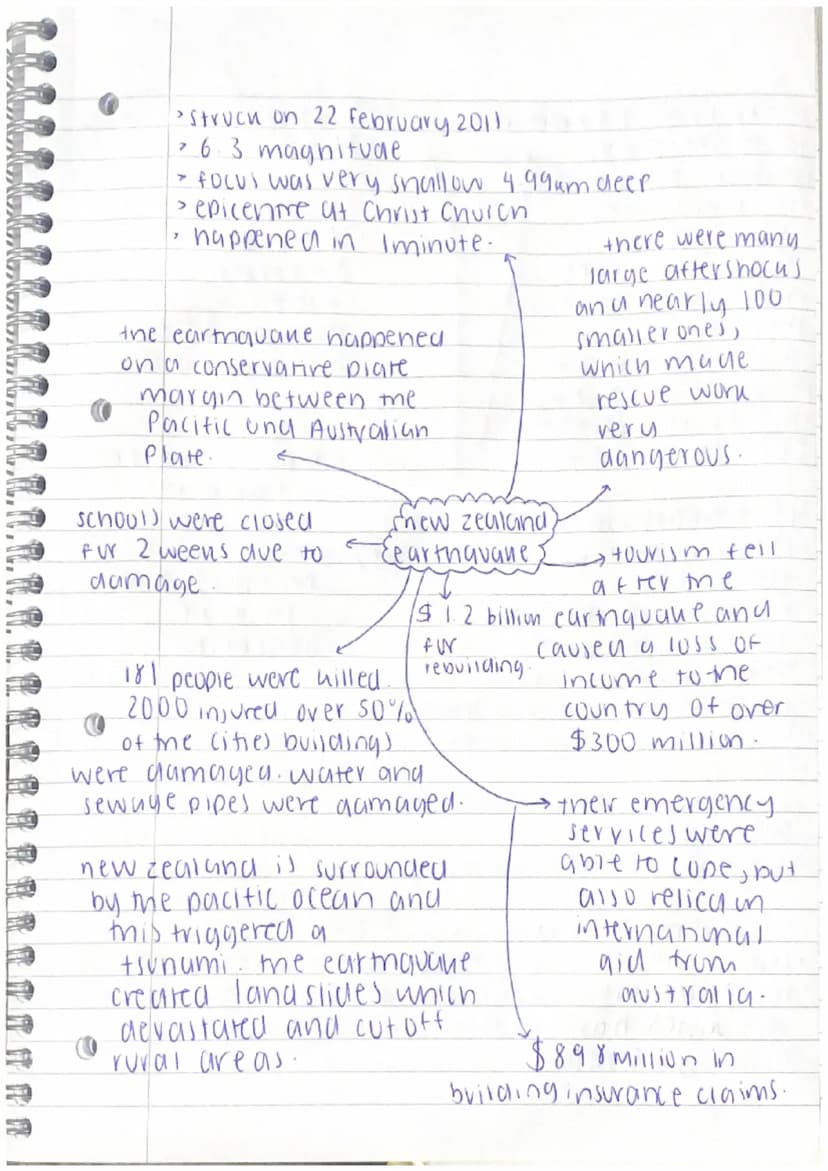 > struck on 22 February 2011
> 6.3 magnitude
> focus was very shallow 4.99km deep
> epicentre at Christ Church
> happened in 1 minute.
there were many
large aftershocks
and nearly 100
smaller ones,
which made
rescue work
very
dangerous.
the earthquake happened
on a conservative plate
margin between the
Pacific and Australian
Plate.
new zealand
earthquake
schools were closed
for 2 weeks due to
damage.
tourism fell
after the
earthquake and
caused a loss of
income to the
country of over
$300 million.
$1.2 billion
for
rebuilding.
181 people were killed.
2000 injured over 50%
of the cities buildings
were damaged. water and
sewage pipes were damaged.
their emergency
services were
able to cope, but
also relied on
international
aid from
australia.
new zealand is surrounded
by the pacific ocean and
this triggered a
tsunami. the earthquake
created landslides which
devastated and cut off
rural areas.
$898 million in
building insurance claims.